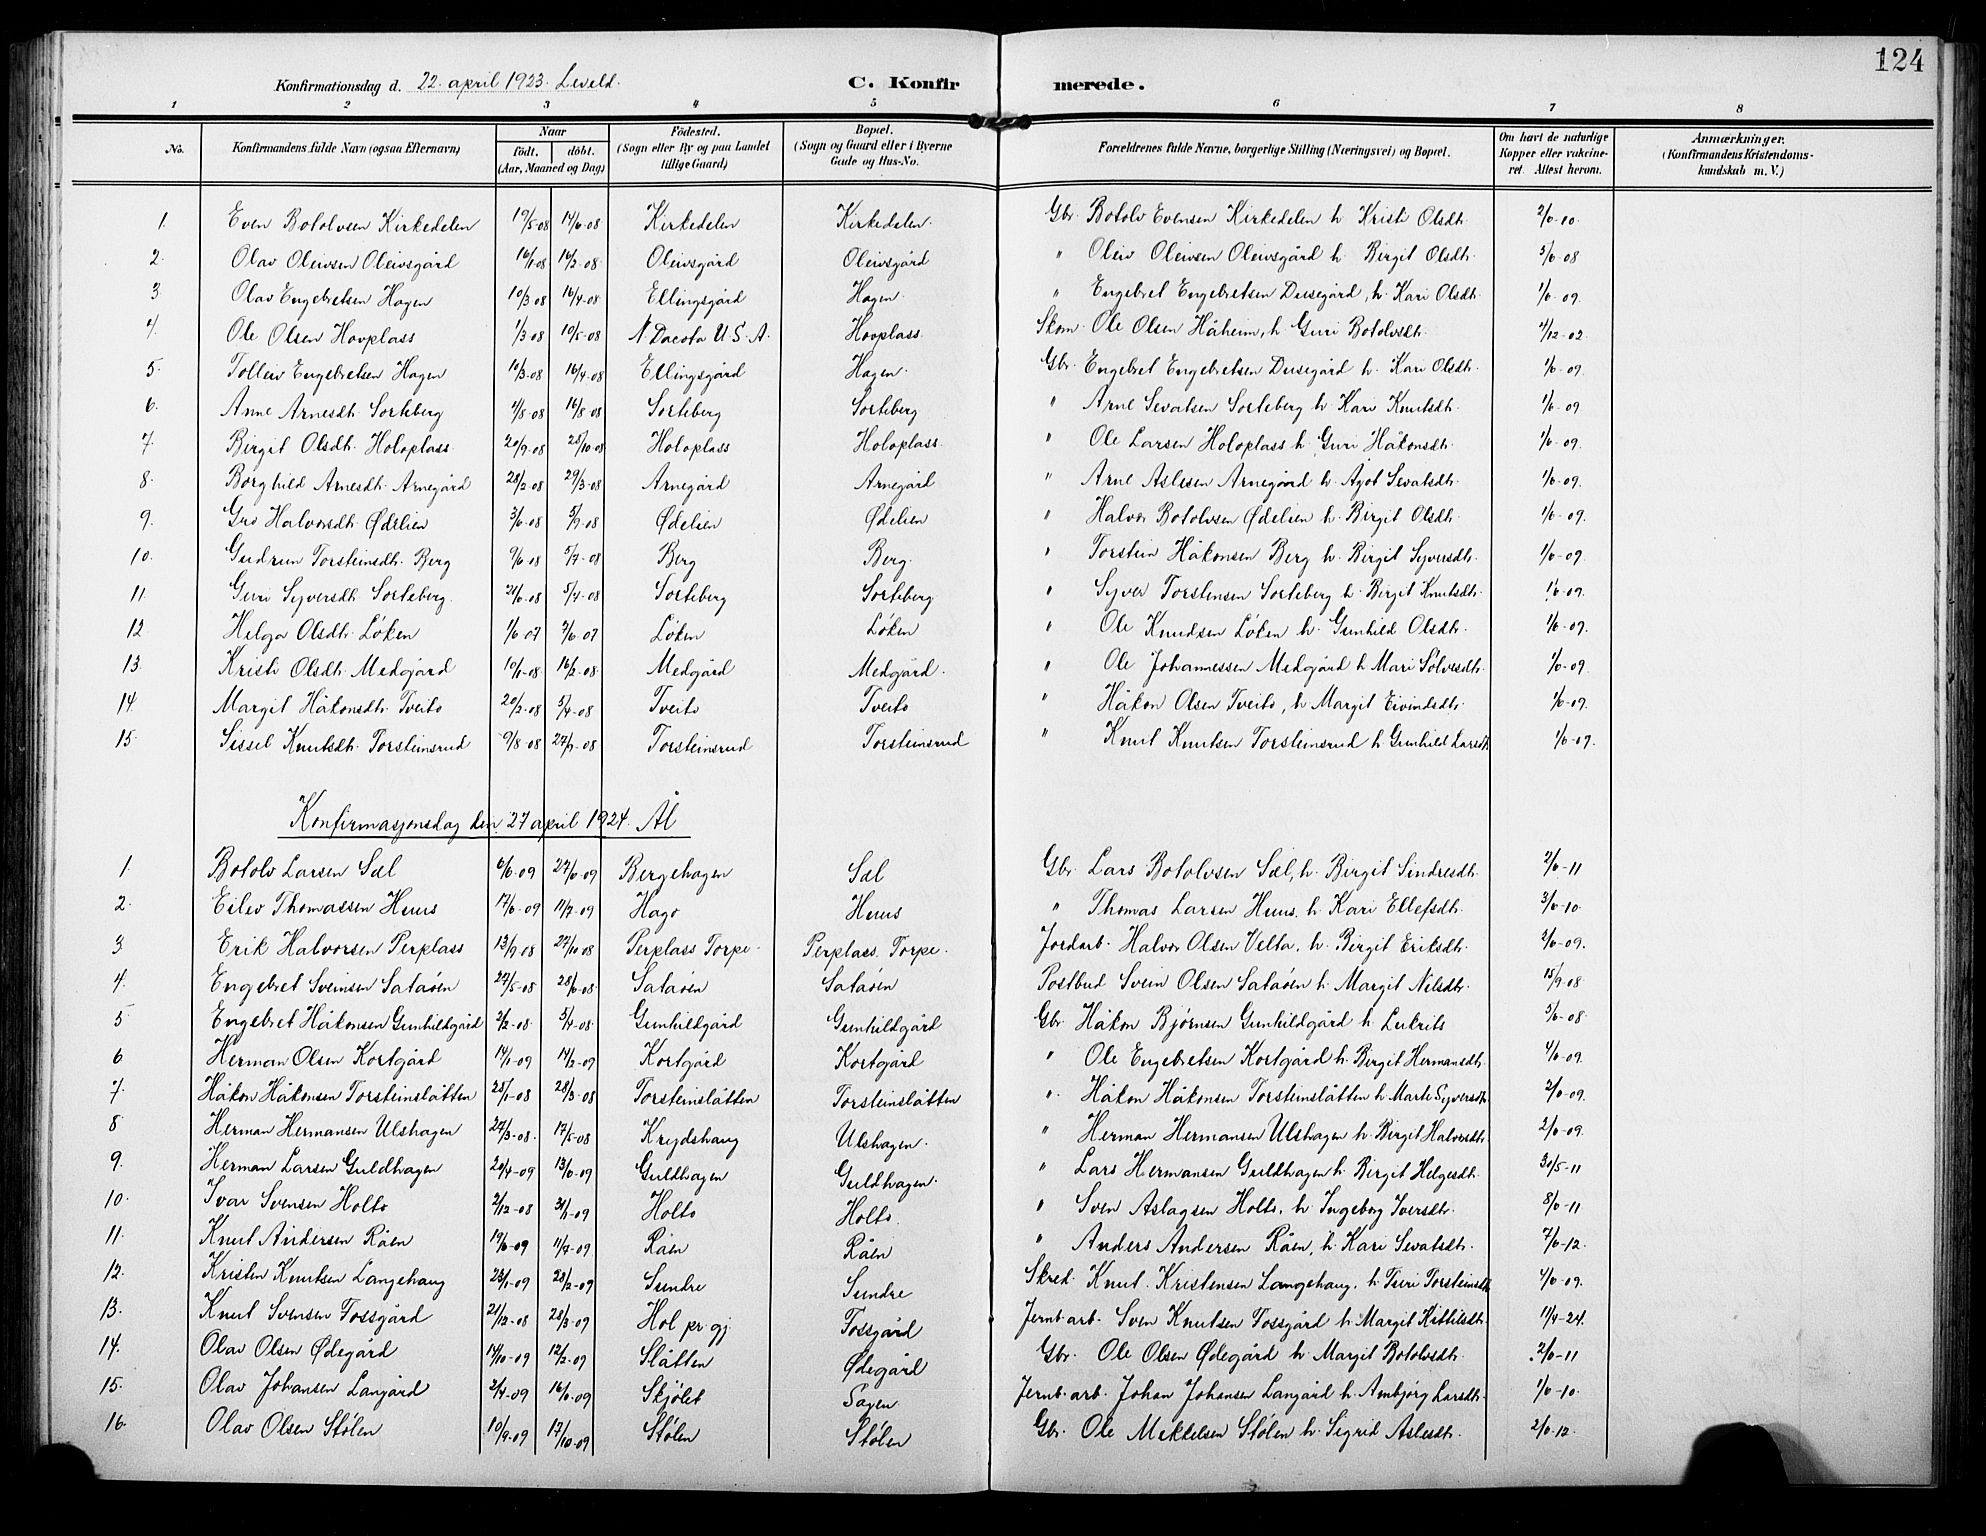 124
Konfirmationsdag d. 22. april 1923. Leveld. C. Konfirmerede.
1 2 3 4 5 6 7 8
No. Konfirmandens fulde Navn (ogsaa Efternavn) Naar født. døbt. (Aar, Maaned og Dag) Fødested. (Sogn eller By og paa Landet tillige Gaard) Bopæl. (Sogn og Gaard eller i Byerne Gade og Hus-No. Forældrenes fulde Navne, borgerlige Stilling (Næringsvei) og Bopæl. Om havt de naturlige Kopper eller vakcineret. Attest herom. Anmærkninger. (Konfirmandens Kristendomskundskab m. V.)
1. Even Botolvsen Kirkedelen 19/5-08 14/6-08 Kirkedelen Kirkedelen. Gbr. Botolv Evensen Kirkedelen h. Kristi Olsdtr. 2/6-10.
2. Olav Oleivsen Oleivsgård 16/1-08 16/2-08 Oleivsgård Oleivsgård " Oleiv Oleivsen Oleivsgård h. Birgit Olsdtr. 3/6-08
3. Olav Engebretsen Hagen 10/3 08 16/4-08 Ellingsgård Hagen. " Engebret Engebretsen Dusegård, h. Kari Olsdtr. 1/6-09.
4. Ole Olsen Hovplass 1/3 08 10/5-08 N. Dacota U. S. A. Hovplass. Skom. Ole Olsen Håheim, h. Guri Botolvsdtr. 4/12-02.
5. Tolleiv Engebretsen Hagen 10/3-08 16/4-08 Ellingsgård Hagen. Gbr. Engebret Engebretsen Dusegård h. Kari Olsdtr. 1/6-09.
6. Anne Arnesdtr. Sorteberg 4/8-08 16/8-08 Sorteberg Sorteberg " Arne Sevatsen Sorteberg h. Kari Knutsdtr. 1/6-09
7. Birgit Olsdtr. Holoplass 20/9-08 25/10-08 Holoplass Holoplass. " Ole Larsen Holoplass h. Guri Håkonsdtr. 1/6-09.
8. Borghild Arnesdtr. Arnegård 28/2-08 29/3-08 Arnegård Arnegård " Arne Aslesen Arnegård h. Ågot Sevatsdtr. 1/6-09.
9. Gro Halvorsdtr. Ødelien 3/6-08 5/9-08 Ødelien Ødelien " Halvor Botolvsen Ødelien h. Birgit Olsdtr. 1/6-09.
10. Gudrun Torsteinsdtr. Berg 9/6 08 5/7-08 Berg Berg. " Torstein Håkonsen Berg h. Birgit Syversdtr. 1/6-09.
11. Guri Syversdtr. Sorteberg. 21/6-08 5/4-08 Sorteberg Sorteberg " Syver Torstensen Sorteberg h. Birgit Knutsdtr. 1/6-09.
12 Helga Olsdtr. Løken 1/6 07 2/6-07 Løken Løken " Ole Knudsen Løken h. Gunhild Olsdtr. 1/6-09.
13. Kristi Olsdtr. Medgård 10/1-08 16/2-08 Medgård Medgård. " Ole Johannessen Medgård h. Mari Sølvesdtr. 1/6-09.
14. Margit Håkonsdtr. Tveito 20/2-08 5/4-08 Tveito Tveito " Håkon Olsen Tveito, h. Margit Eivindsdtr. 1/6-09.
15. Sissel Knutsdtr. Torsteinsrud 9/8-08 27/9-08 Torsteinsrud Torsteinsrud " Knut Knutsen Torsteinsrud h. Gunhild Larsdtr. 1/6-09.
Konfirmasjonsdag den 27 april 1924. Ål
1. Botolv Larsen Sæl 6/6-09 27/6-09 Bergehagen Sæl Gbr. Lars Botolvsen Sæl, h. Birgit Sindresdtr. 2/6-11
2. Eilev Thomassen Huus 17/6-09 11/7-09 Hago Huus " Thomas Larsen Huus, h. Kari Ellefsdtr. 3/6-10.
3 Erik Halvorsen Perplass 13/9-08 27/10-08 Perplass Torpe. Perplass. Torpe. Jordarb. Halvor Olsen Velta, h. Birgit Eriksdtr. 2/6-09.
4. Engebret Sveinsen Sataøen 27/5-08 28/6-08 Sataøen Sataøen Postbud Svein Olsen Sataøen h. Margit Nilsdtr. 15/9-08
5 Engebret Håkonsen Gunhildgård 2/2-08. 3/4-08. Gunhildgård Gunhildgård Gbr. Håkon Bjørnsen Gunhildgård h. Lukrits 5/6-08
6 Herman Olsen Kortgård 14/1-09 14/2-09 Kortgård Kortgård " Ole Engebretsen Kortgård h. Birgit Hermansdtr. 4/6-09.
7. Håkon Håkonsen Torsteinslåtten 25/1-08 28/3-08 Torsteinslåtten Torsteinslåtten ". Håkon Håkonsen Torsteinslåtten h. Marte Syversdtr. 2/6-09.
8 Herman Hermansen Ulshagen 27/3-08. 17/5-08 Krydshaug Ulshagen. " Herman Hermansen Ulshagen h. Birgit Halvorsdtr. 2/6-09.
9. Herman Larsen Guldhagen 20/4-09 13/6-09 Guldhagen Guldhagen. " Lars Hermansen Guldhagen h. Birgit Helgesdtr. 30/5-11
10. Ivar Svensen Holto 2/12-08 31/1-09 Holto Holto. " Sven Aslagsen Holto, h. Ingeborg Iversdtr. 8/6-11
11. Knut Andersen Råen 19/6-09 11/7-09 Råen Råen " Anders Andersen Råen, h. Kari Sevatsdtr. 7/6-12.
12. Kristen Knutsen Langehaug 23/1-09 28/2-09 Sundre Sundre Skred. Knut Kristensen Langehaug, h. Turi Torsteinsdtr. 4/6-09.
13. Knut Svensen Fossgård 21/12-08 28/3-09 Hol pr. gj. Fossgård Jernb.arb. Sven Knutsen Fossgård h. Margit Kittilsdtr. 11/4-24.
14. Olav Olsen Ødegård 14/10-09 12/2-09 Slåtten Ødegård Gbr. Ole Olsen Ødegård h. Margit Botolvsdtr. 2/6-11
15. Olav Johansen Langård 2/4-09 16/6-09 Skjølet Sagen Jernb. arb. Johan Johansen Langård h. Ambjørg Larsdtr. 1/6-10.
16. Olav Olsen Stølen 10/9-09 17/10-09 Stølen Stølen Gbr. Ole Mekkelsen Stølen h. Sigrid Aslesdtr. 2/6-12.